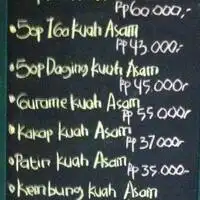 Rp 60.000,-
• Sop Iga Kuah Asam
Rp 43.000,-
• Sop Daging Kuah Asam
Rp 45.000,-
• Gurame Kuah Asam
Rp 55.000,-
• Kakap Kuah Asam
Rp 37.000,-
• Patin Kuah Asam
Rp 35.000,-
• Kembung Kuah Asam